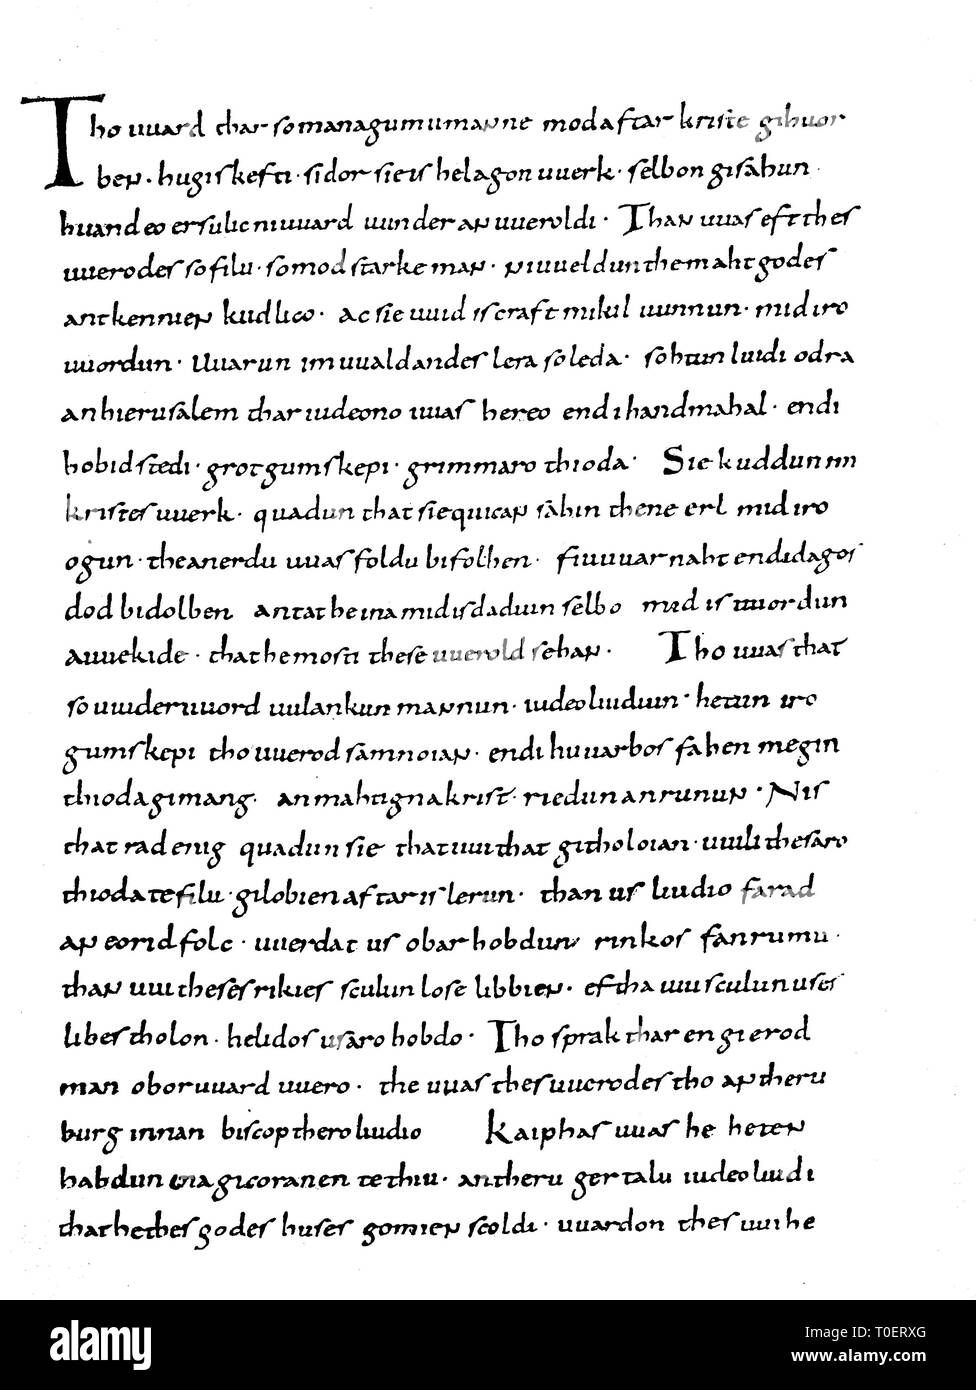 Tho uuard thar so managumu manne mod aftar kriste gihuor
ben · hugiskefti · sidor sie is helagon uuerk · selbon gisahun
huand eo er sulic ni uuard uunder an uueroldi · Than uuas eft thes
uuerodes so filu · so mod starke man · ni uueldun the maht godes
antkennien kudlico · ac sie uuid is craft mikil uunnun · mid iro
uuordun · Uuarun im uualdandes lera so leda · sohtun liudi odra
an hierusalem thar iudeono uuas hereo endi handmahal · endi
hobidstedi · grot gumskepi · grimmaro thioda · Sie kuddun im
kristes uuerk · quadun that sie quican sahin thene erl mid iro
ogun · the an erdu uuas foldu bifolhen · fiuuuar naht endi dagos
dod bidolben antat he ina mid is dadiun selbo mid is uuordun
auuekide · that he mosti these uuerold sehan · Tho uuas that
so uuideruuord uulankun mannun · iudeo liudiun · hetun iro
gumskepi tho uuerod samnoian · endi huuarbos fahen megin
thioda gimang · an mahtigna krist · riedun an runun · Nis
that rad enig quadun sie that uui that githoloian · uuili thesaro
thioda te filu · gilobien aftar is lerun · than us liudio farad
an eoridfolc · uuerdat us obarhobdun rinkos fan rumu ·
than uui theses rikies sculun lose libbien · eftha uui sculun uses
libes tholon · helidos usaro hobdo · Tho sprak thar en gierod
man obor uuard uuero · the uuas thes uuerodes tho an theru
burg innan biscop thero liudio Kaiphas uuas he heten
habdun ina gicoranen te thiu · an theru gertalu iudeo liudi
that he thes godes huses gomien scoldi · uuardon thes uuihe
alamy
alamy
Image ID: T0ERXG
www.alamy.com